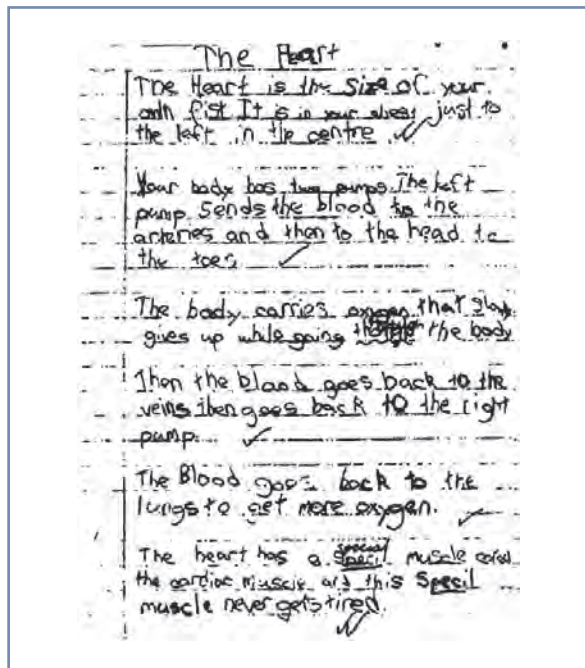 The Heart
The Heart is the size of your
own fist It is in your chest just to
the left in the centre
Your body has two pumps The left
pump sends the blood to the
arteries and then to the head to
the toes
The body carries oxygen that
gives up while going the body
Then the blood goes back to the
veins then goes back to the right
pump.
The Blood goes back to the
lungs to get more oxygen.
special
The heart has a specil muscle
the cardiac muscle and this specil
muscle never gets tired.